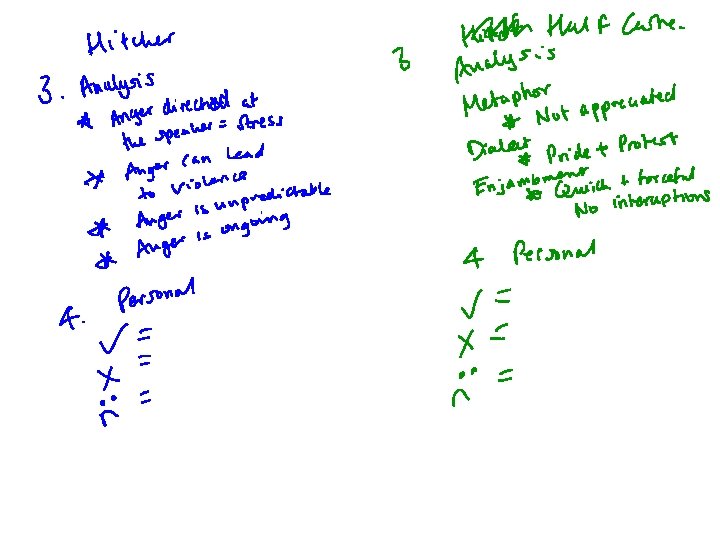 Hitcher
3. Analysis
* Anger directed at
the speaker = stress
* Anger can lead
to violence
* Anger is unpredictable
* Anger is ongoing
4. Personal
✓ =
x =
=
Half Caste.
3 Analysis
Metaphor
* Not appreciated
Dialect
* Pride + Protest
Enjambment
* Quick + forceful
No interuptions
4 Personal
✓ =
x =
=